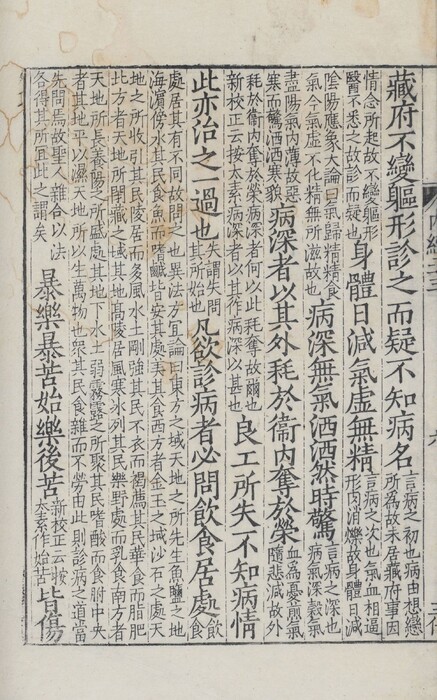 藏府不變軀形診之而疑不知病名
言病之初也病由想戀
所為故未居藏府事因
情念所起故不變軀形
醫不悉之故診而疑也
身體日減氣虛無精
言病之次也氣血相逼
形肉消爍故身體日減
陰陽應象大論曰氣歸精精食
氣今氣虛不化精無所滋故也
病深無氣洒洒然時驚
言病之深也
病氣深穀氣
盡陽氣內薄故惡
寒而驚洒洒寒貌
病深者以其外耗於衞內奪於榮
血為憂煎氣
隨悲減故外
耗於衞內奪於榮病深者何以此耗奪故爾也
新校正云按太素病深者以其作病深以甚也
良工所失不知病情
此亦治之一過也
失謂失問
其所始也
凡欲診病者必問飲食居處
飲食
處居其有不同故問之也異法方宜論曰東方之域天地之所先生魚鹽之地
海濱傍水其民食魚而嗜鹹皆安其處美其食西方者金玉之域沙石之處天
地之所收引其民陵居而多風水土剛強其民不衣而褐薦其民華食而脂肥
北方者天地所閉藏之域其地高陵居風寒冰列其民樂野處而乳食南方者
天地所長養陽之所盛處其地下水土弱霧露之所聚其民嗜酸而食胕中央
者其地平以濕天地所以生萬物也衆其民食雜而不勞由此則診病之道當
先問焉故聖人雜合以法
各得其所宜此之謂矣
暴樂暴苦始樂後苦
新校正云按
太素作始苦
皆傷